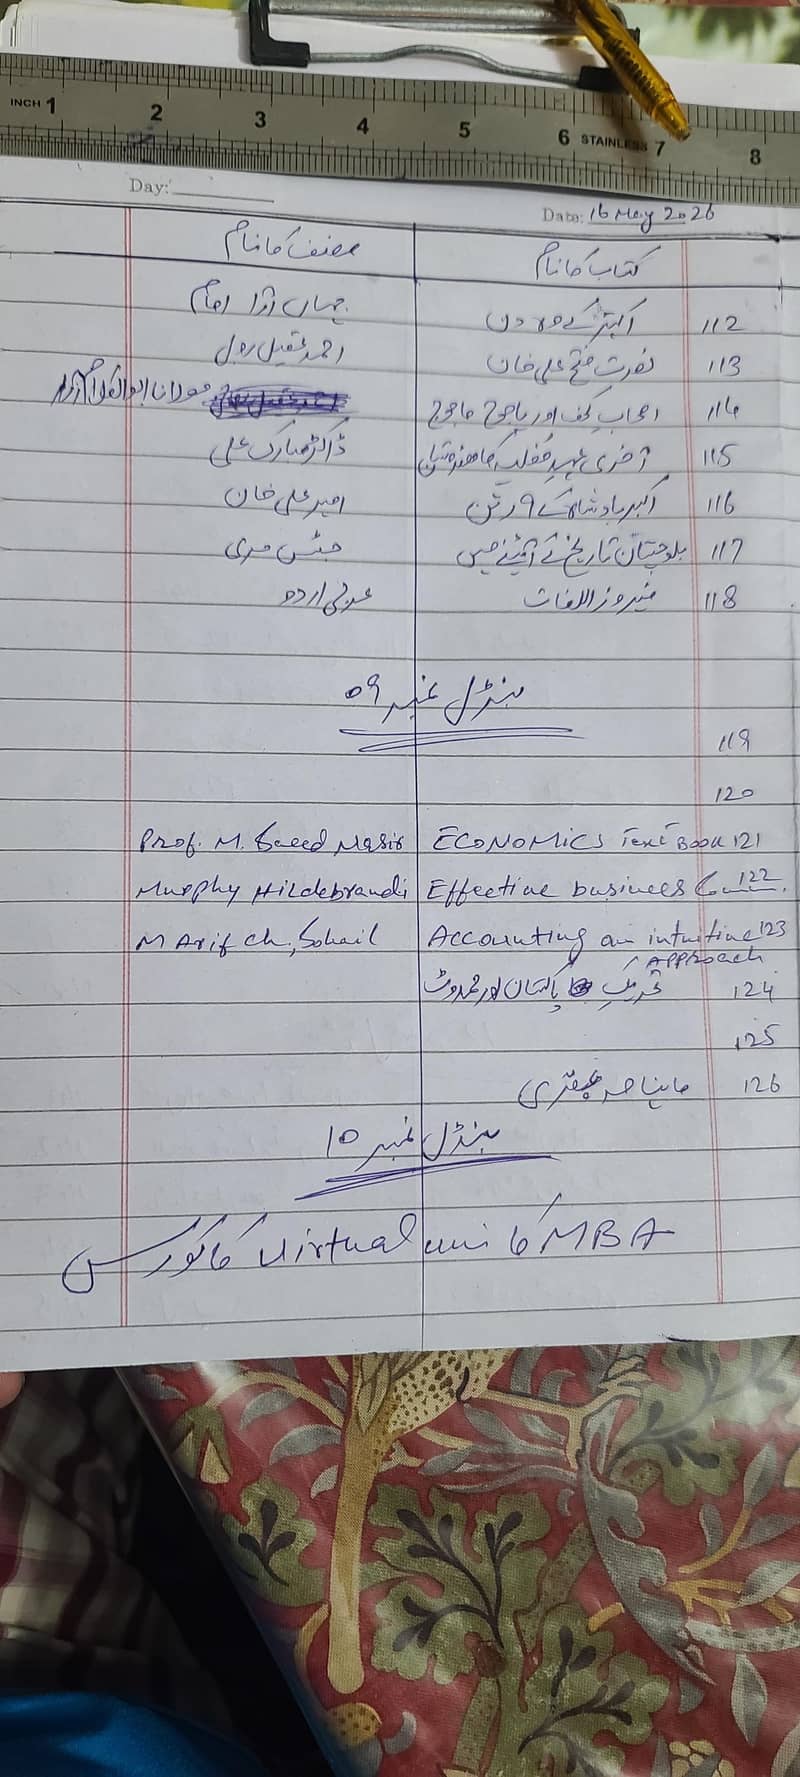 INCH 1 2 3 4 5 6 STAINLESS 7 8
Day:
Date: 16 May 2026
کتاب کا نام مصنف کا نام
112 اکبر کے جہاں آرا امام
113 نصرت فتح علی خان احمد عقیل روبی
114 اصحاب کہف اور یاجوج ماجوج مولانا ابوالکلام آزاد
115 آخری عہد مغلیہ کا ہندوستان ڈاکٹر مبارک علی
116 اکبر بادشاہ کے ۹ رتن امیر علی خان
117 بلوچستان تاریخ کے آئینے میں جسٹس مری
118 فیروز اللغات عربی اردو
بنڈل نمبر ۰۹
119
120
121 ECONOMICS Text Book Prof. M. Saeed Nasir
122 Effective business Murphy Hildebrandi
123 Accounting an intuitive M Arif Ch, Sohail
Approach
124 تحریک پاکستان اور
125
126
بنڈل نمبر 10
MBA کا virtual uni کا کورس